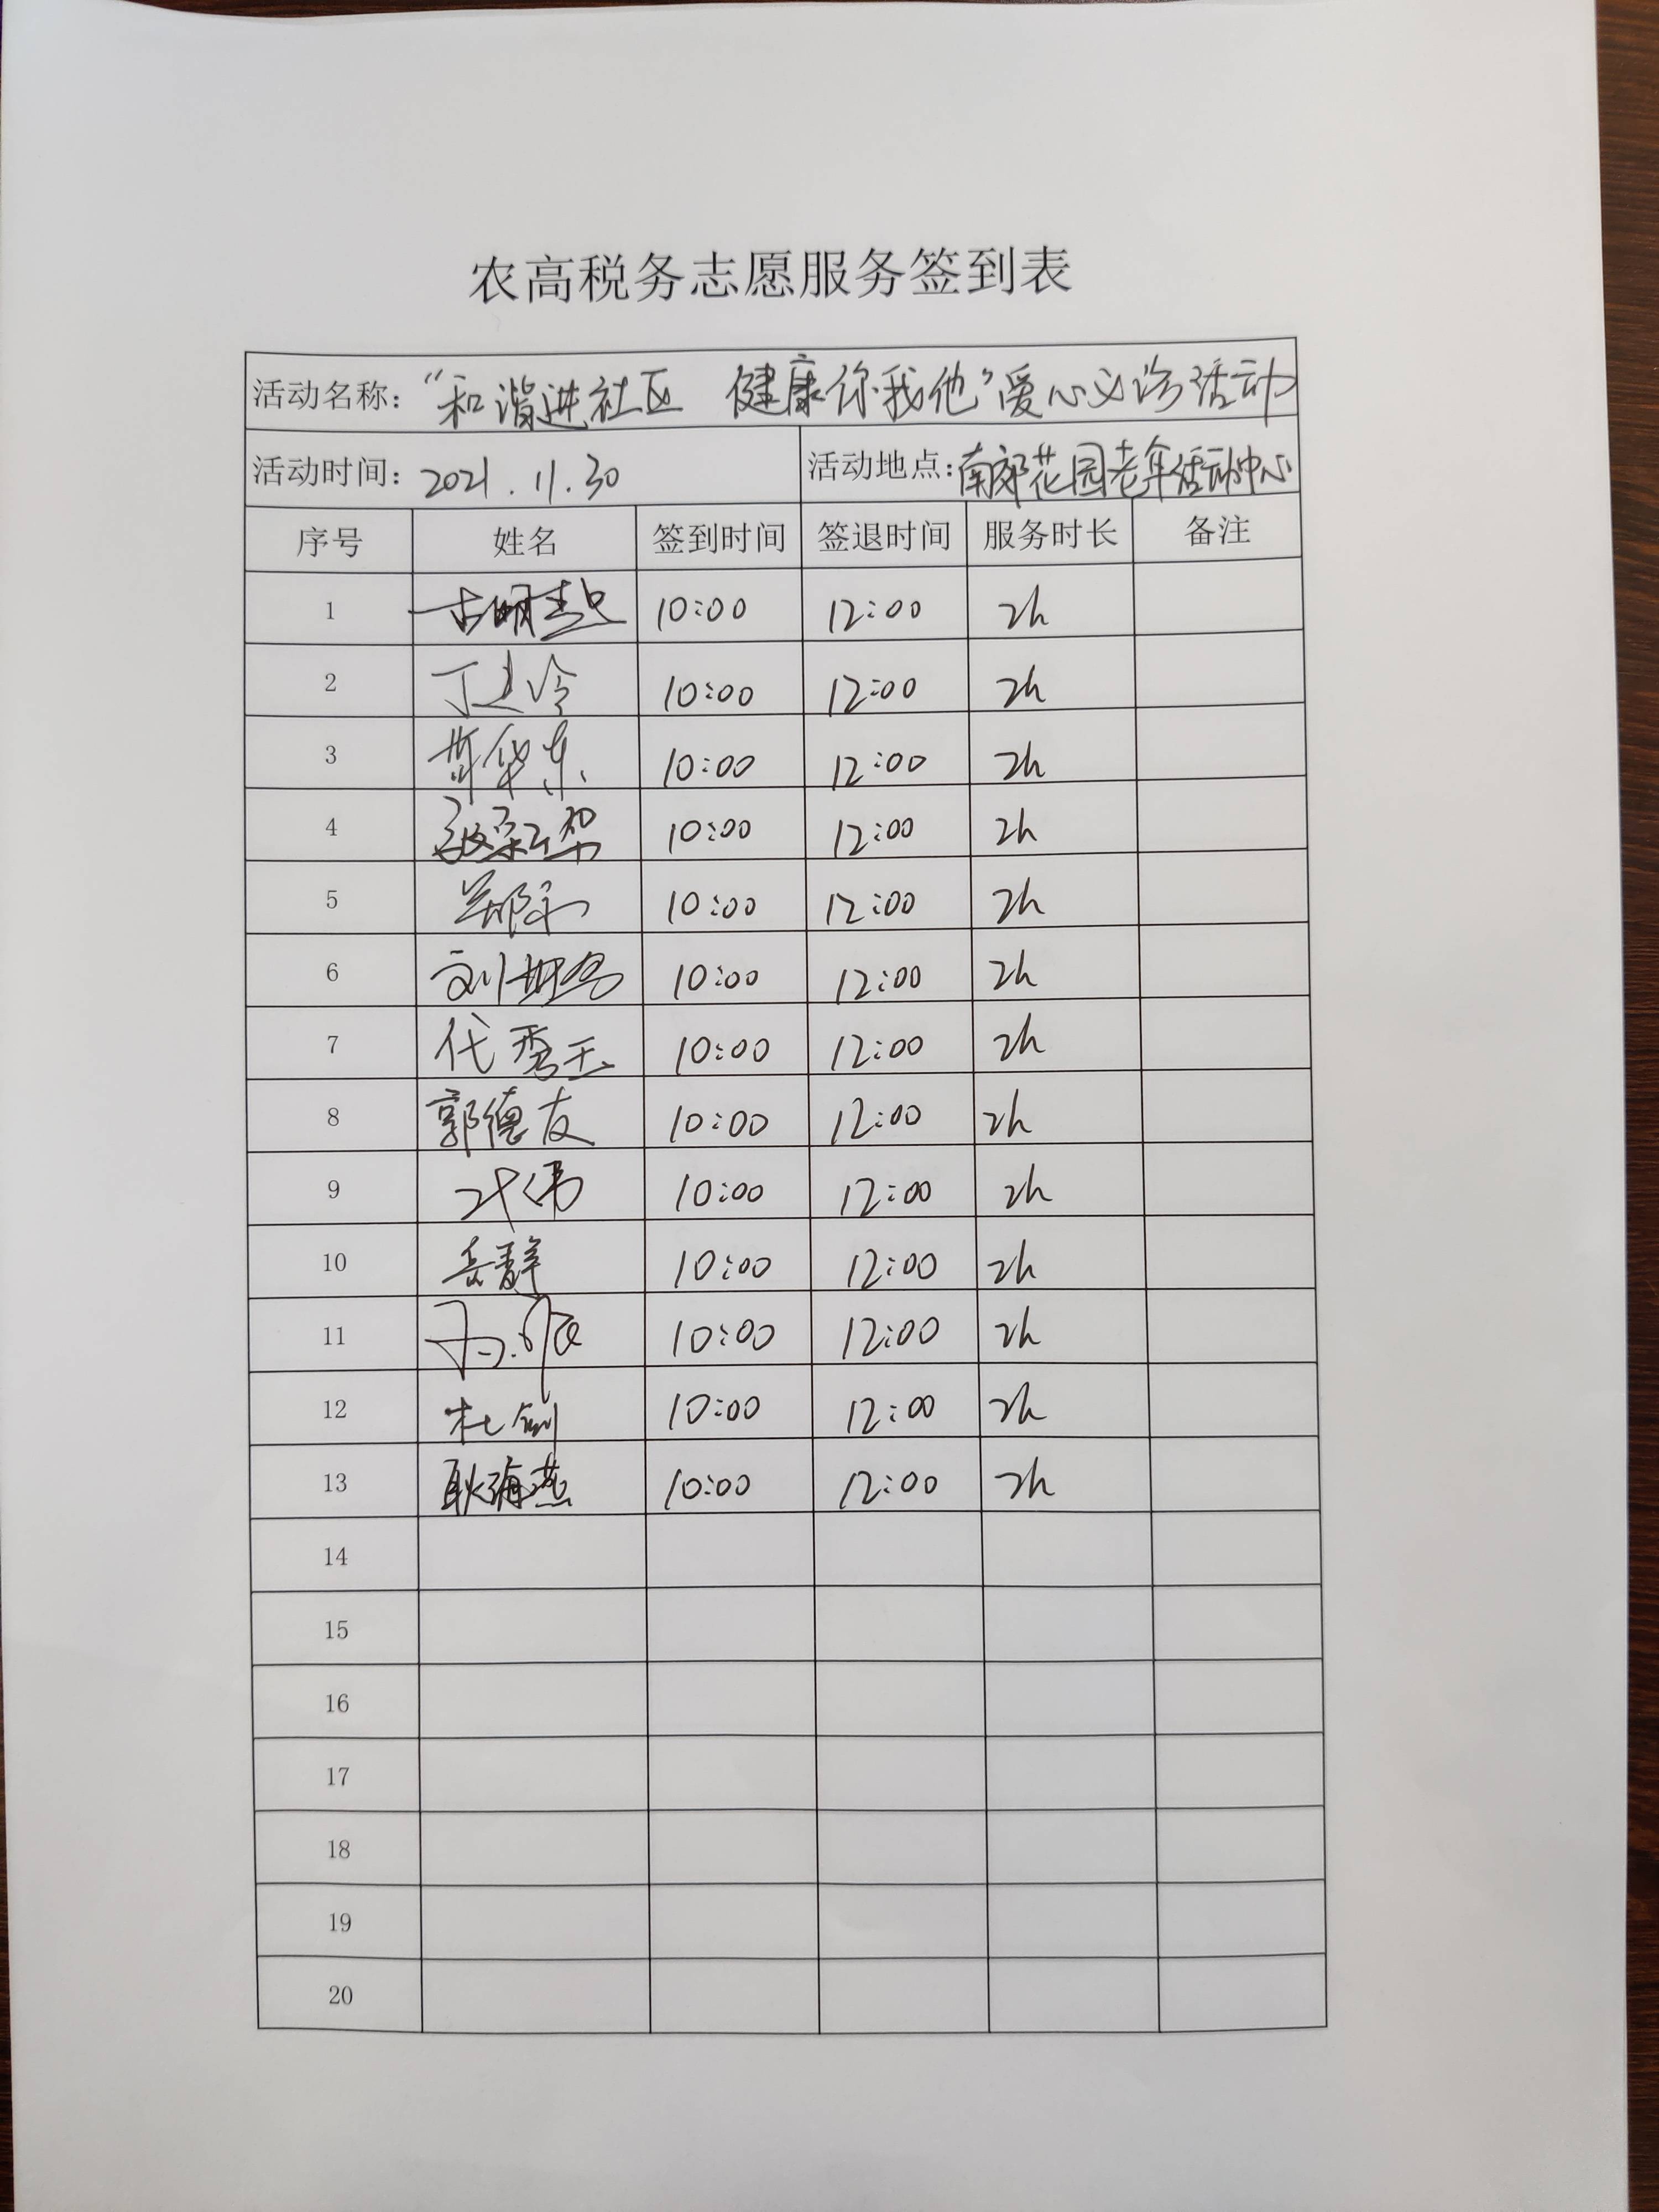 农高税务志愿服务签到表
活动名称：“和谐进社区 健康你我他”爱心义诊活动
活动时间：2021.11.30 活动地点：南郊花园老年活动中心
序号 姓名 签到时间 签退时间 服务时长 备注
1 10:00 12:00 2h
2 10:00 12:00 2h
3 10:00 12:00 2h
4 10:00 12:00 2h
5 10:00 12:00 2h
6 10:00 12:00 2h
7 代秀玉 10:00 12:00 2h
8 郭德友 10:00 12:00 2h
9 10:00 12:00 2h
10 岳静 10:00 12:00 2h
11 10:00 12:00 2h
12 杜剑 10:00 12:00 2h
13 耿海燕 10:00 12:00 2h
14
15
16
17
18
19
20